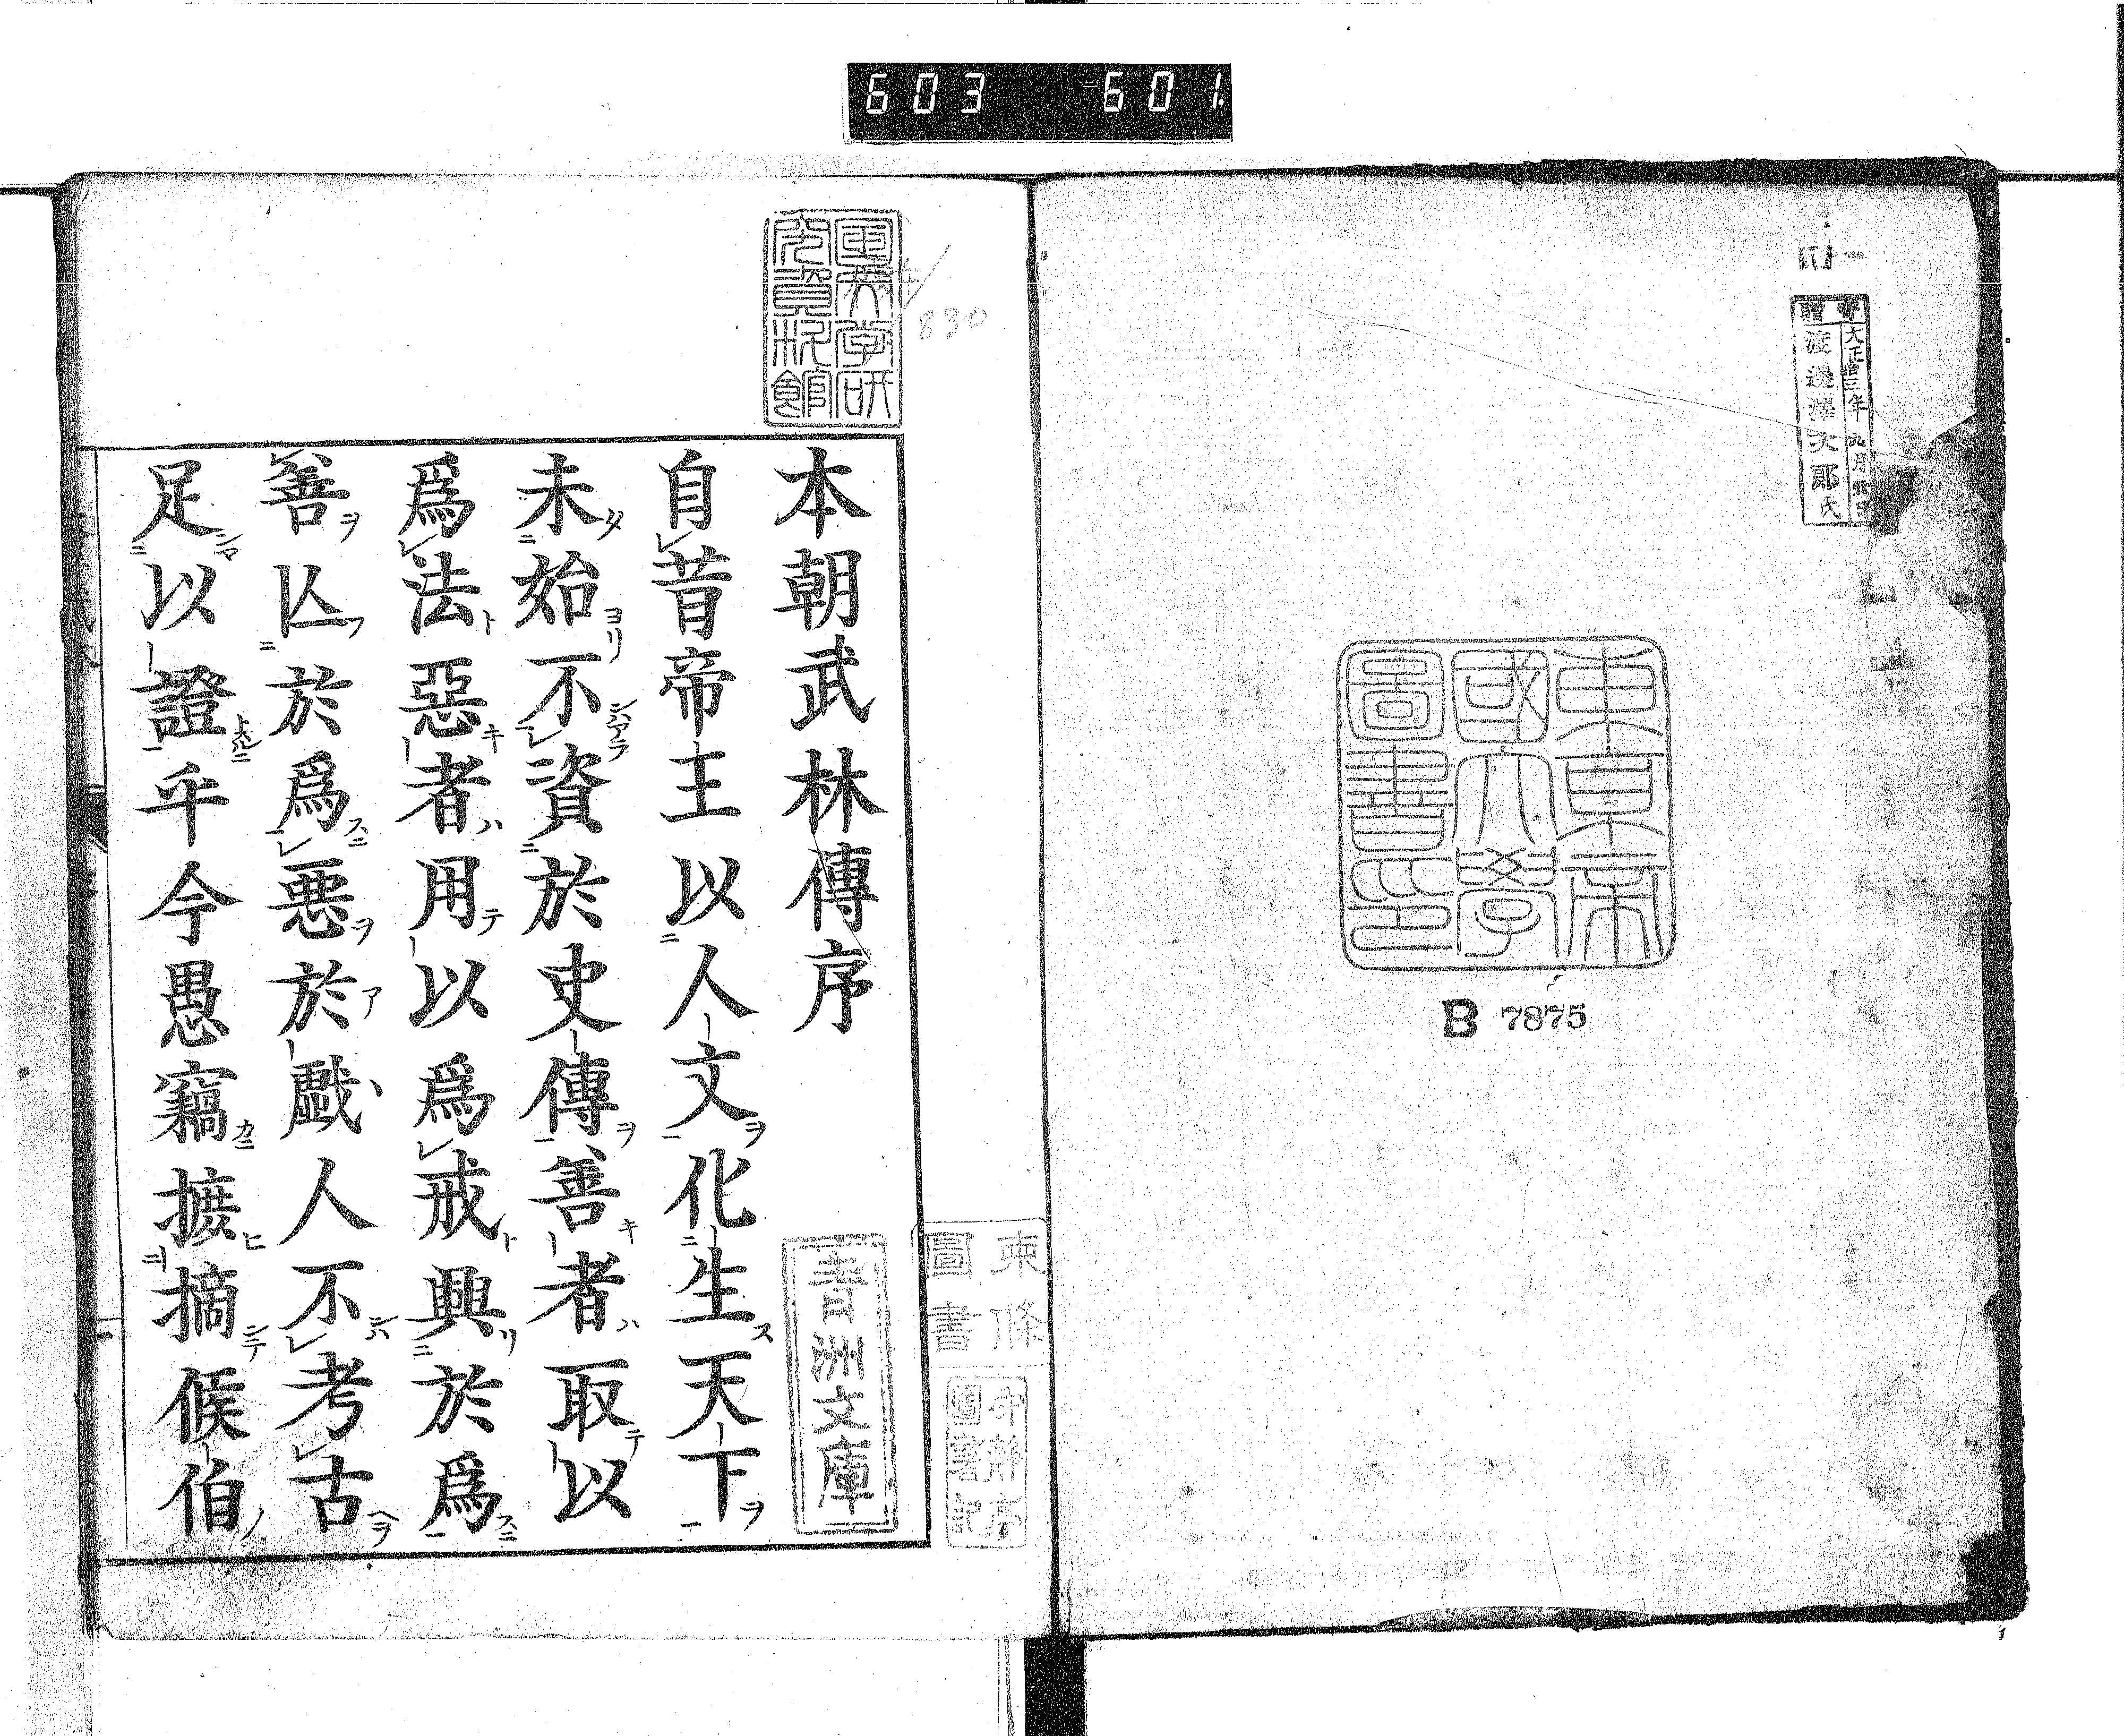 603 601
寄贈
大正拾三年
渡邊澤次郎氏
東京帝
國大學
圖書印
B 7875
830
本朝武林傳序
自昔帝王以人文化生天下
未始不資於史傳善者取以
爲法惡者用以爲戒興於爲
善亾於爲惡於戲人不考古
足以證乎今愚竊摭摘候伯
青洲文庫
圖書